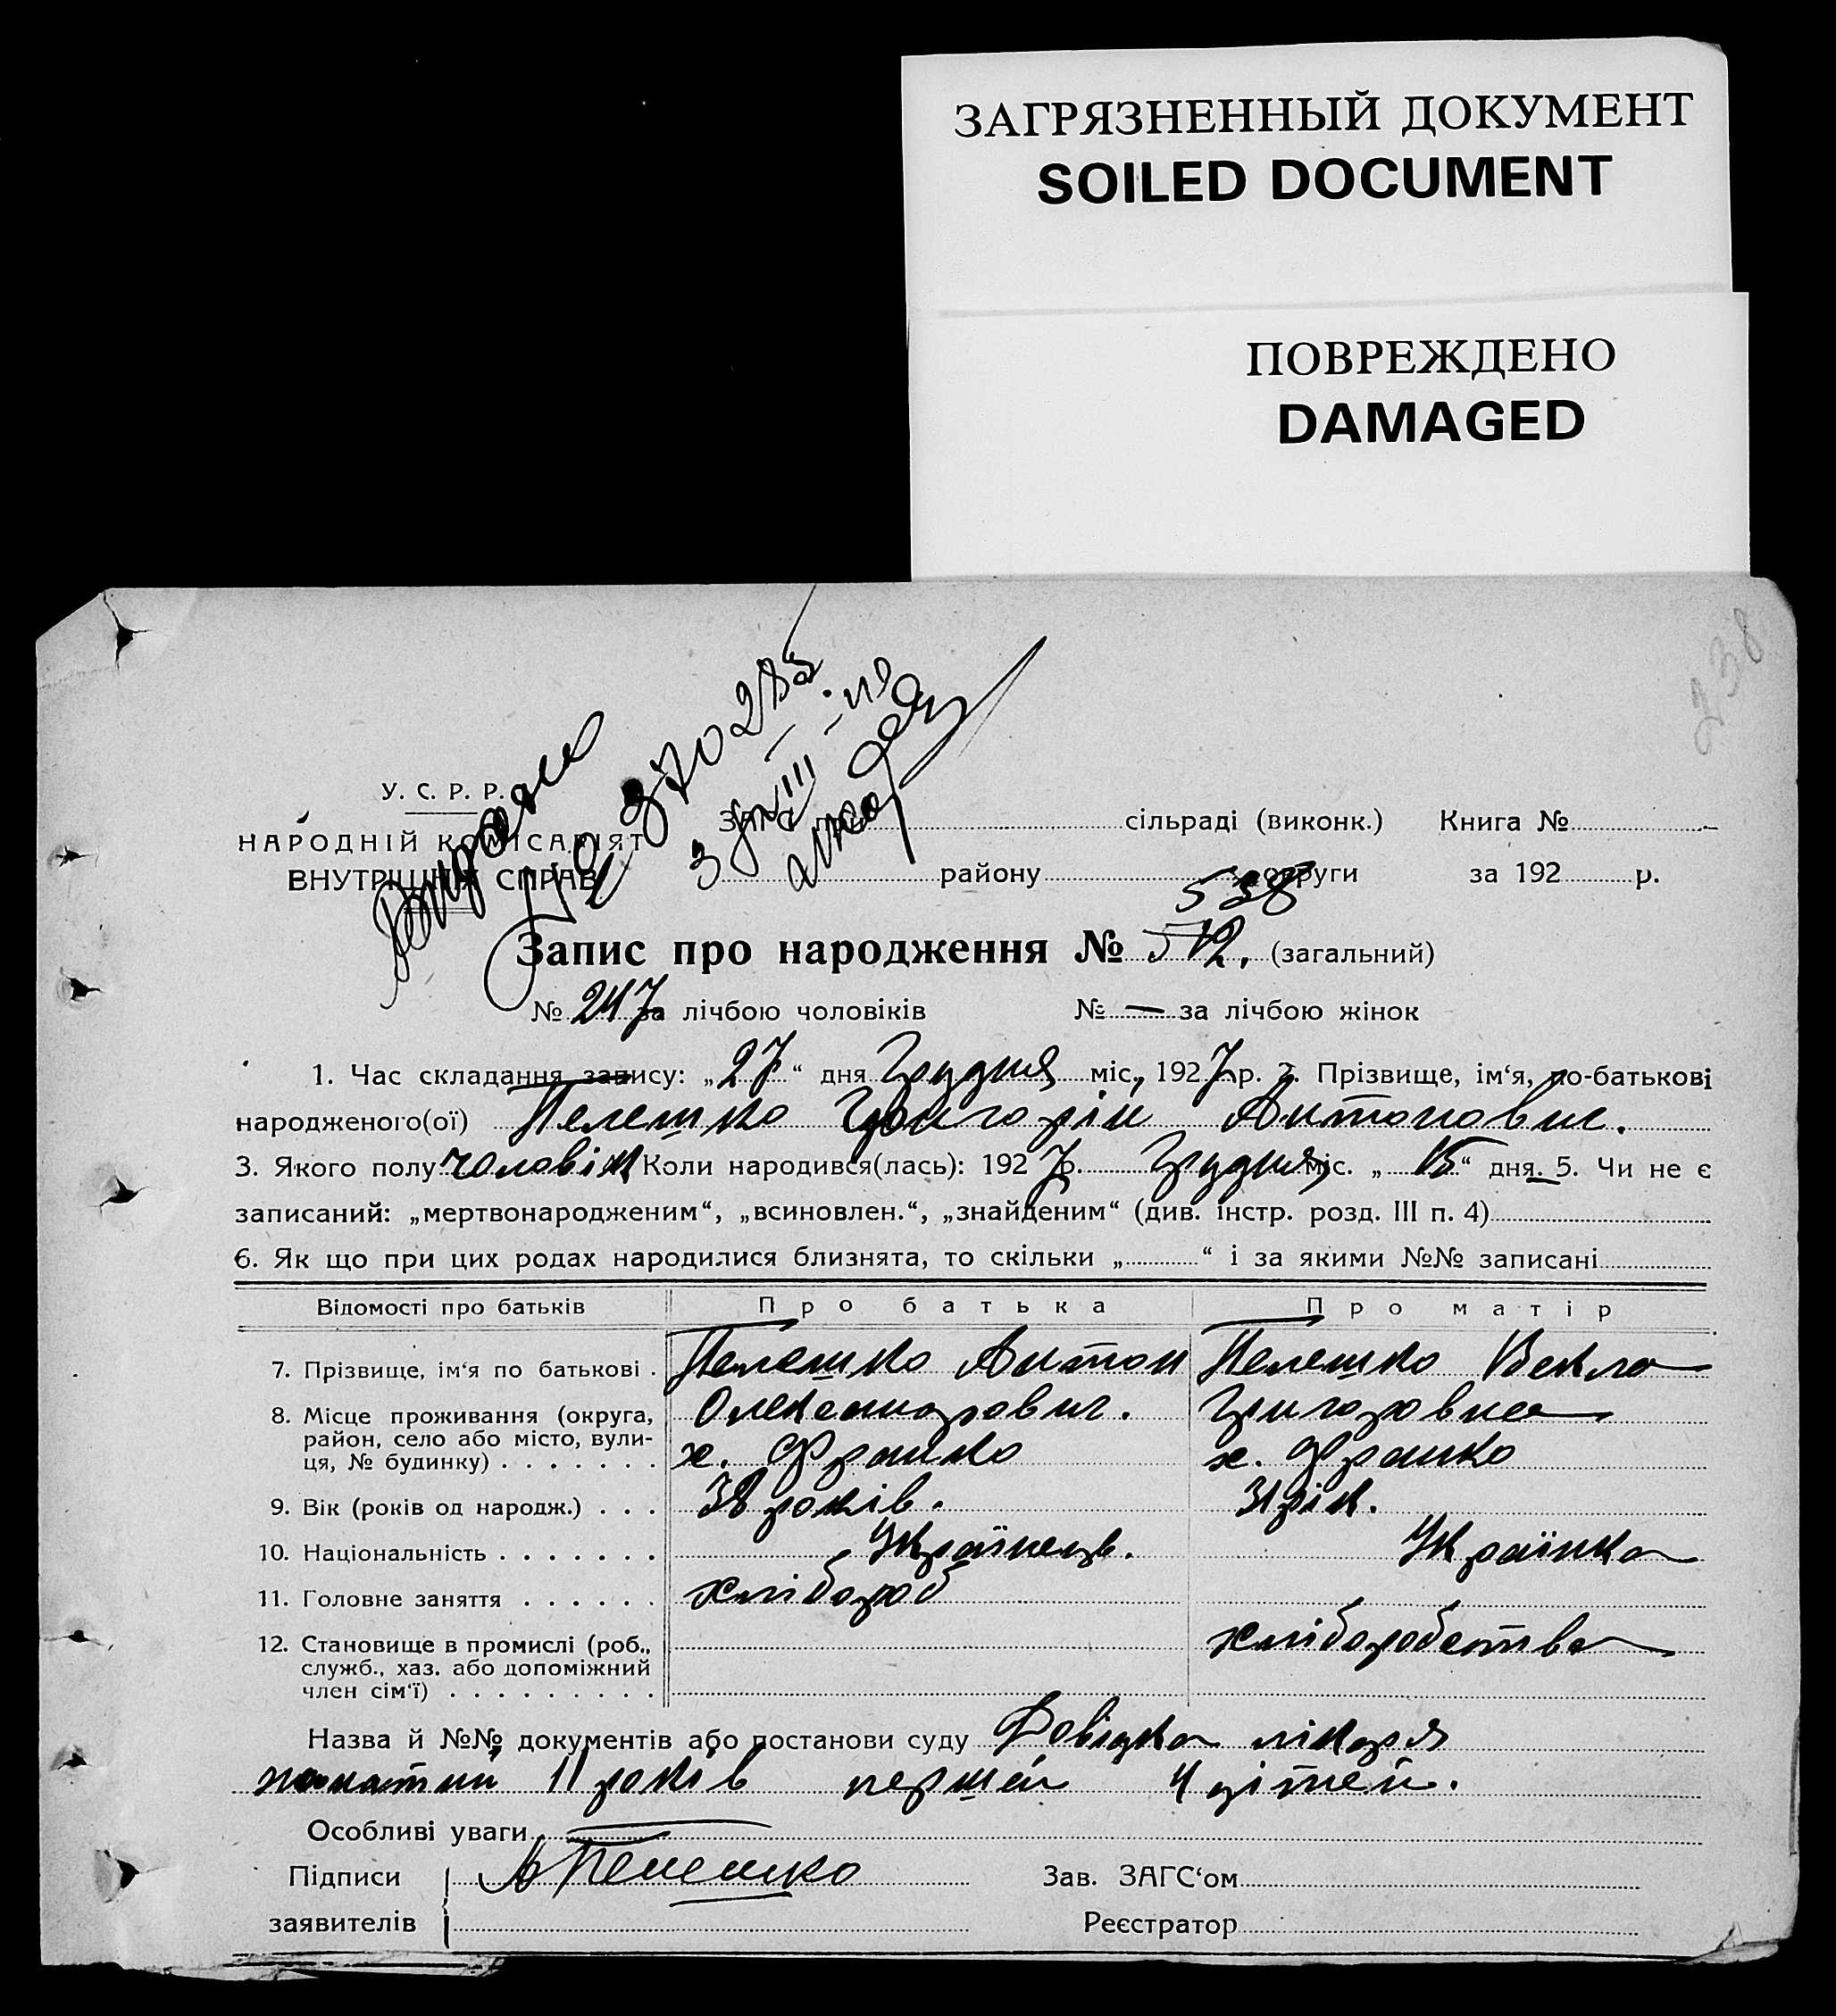 ЗАГРЯЗНЕННЫЙ ДОКУМЕНТ
SOILED DOCUMENT
ПОВРЕЖДЕНО
DAMAGED
238
Видано
370285
У. С. Р. Р.
НАРОДНІЙ КОМІСАРІЯТ
ВНУТРІШНІХ СПРАВ
ЗАГС при сільраді (виконк.) Книга №
району округи за 192 р.
538
Запис про народження № 512. (загальний)
№ 247 за лічбою чоловіків № — за лічбою жінок
1. Час складання запису: „27“ дня Грудня міс. 1927 р. 2. Прізвище, ім‘я, по-батькові
народженого(ої) Пелешко Григорій Антонович.
3. Якого полу чоловік Коли народився(лась): 1927 р. Грудня міс. „15“ дня. 5. Чи не є
записаний: „мертвонародженим“, „всиновлен.“, „знайденим“ (див. інстр. розд. III п. 4)
6. Як що при цих родах народилися близнята, то скільки „ “ і за якими №№ записані
Відомості про батьків Про батька Про матір
7. Прізвище, ім‘я по батькові . Пелешко Антон Пелешко Векла
8. Місце проживання (округа, Олександрович. Григоровна
район, село або місто, вули-
ця, № будинку) . . . . . . . х. Франко х. Франко
9. Вік (років од народж.) . . . 38 років. 31 рік.
10. Національність . . . . . . . Українець. Українка
11. Головне заняття . . . . . . хлібороб
12. Становище в промислі (роб., хліборобства
служб., хаз. або допоміжний
член сім‘ї) . . . . . . . . .
Назва й №№ документів або постанови суду Довідка лікаря
жонатий 11 років перший 4 дітей.
Особливі уваги
Підписи А Пелешко Зав. ЗАГС‘ом
заявителів Реєстратор